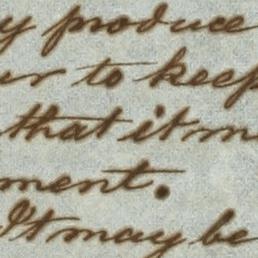 y produce
er to keep
that it m
ment.
It may be